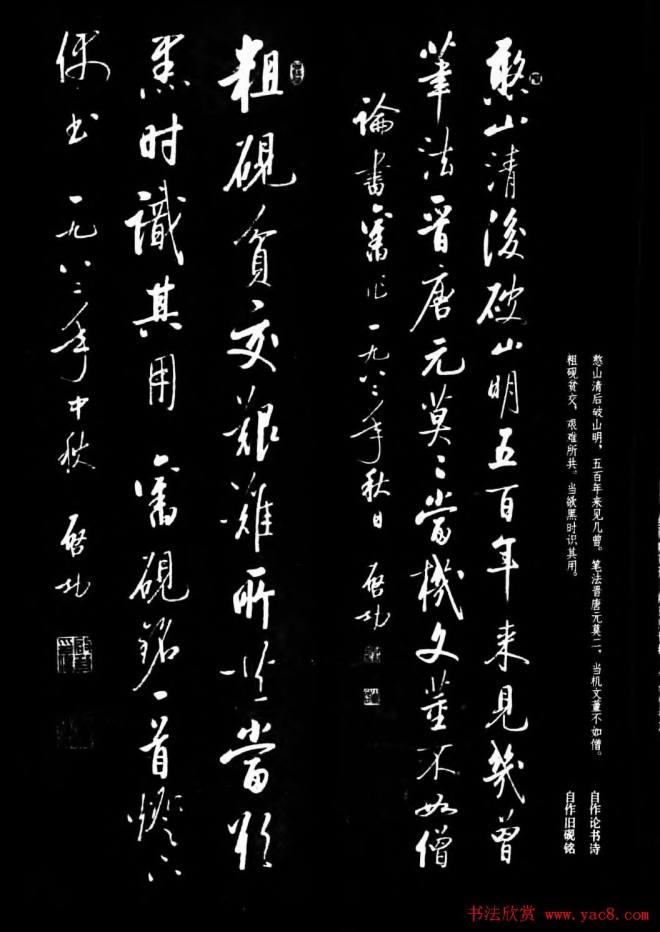 憨山清后破山明，五百年来见几曾。笔法晋唐元莫二，当机文董不如僧。 自作论书诗
粗砚贫交，艰难所共。当欲黑时识其用。 自作旧砚铭
憨山清後破山明五百年来見幾曾
筆法晋唐元莫〻當機文董不如僧
論書舊作一九八二年秋日 啓功
粗硯貧交艱難所共當欲
黑时識其用 舊硯銘一首燈下
书 一九八二年中秋 啓功
书法欣赏 www.yac8.com